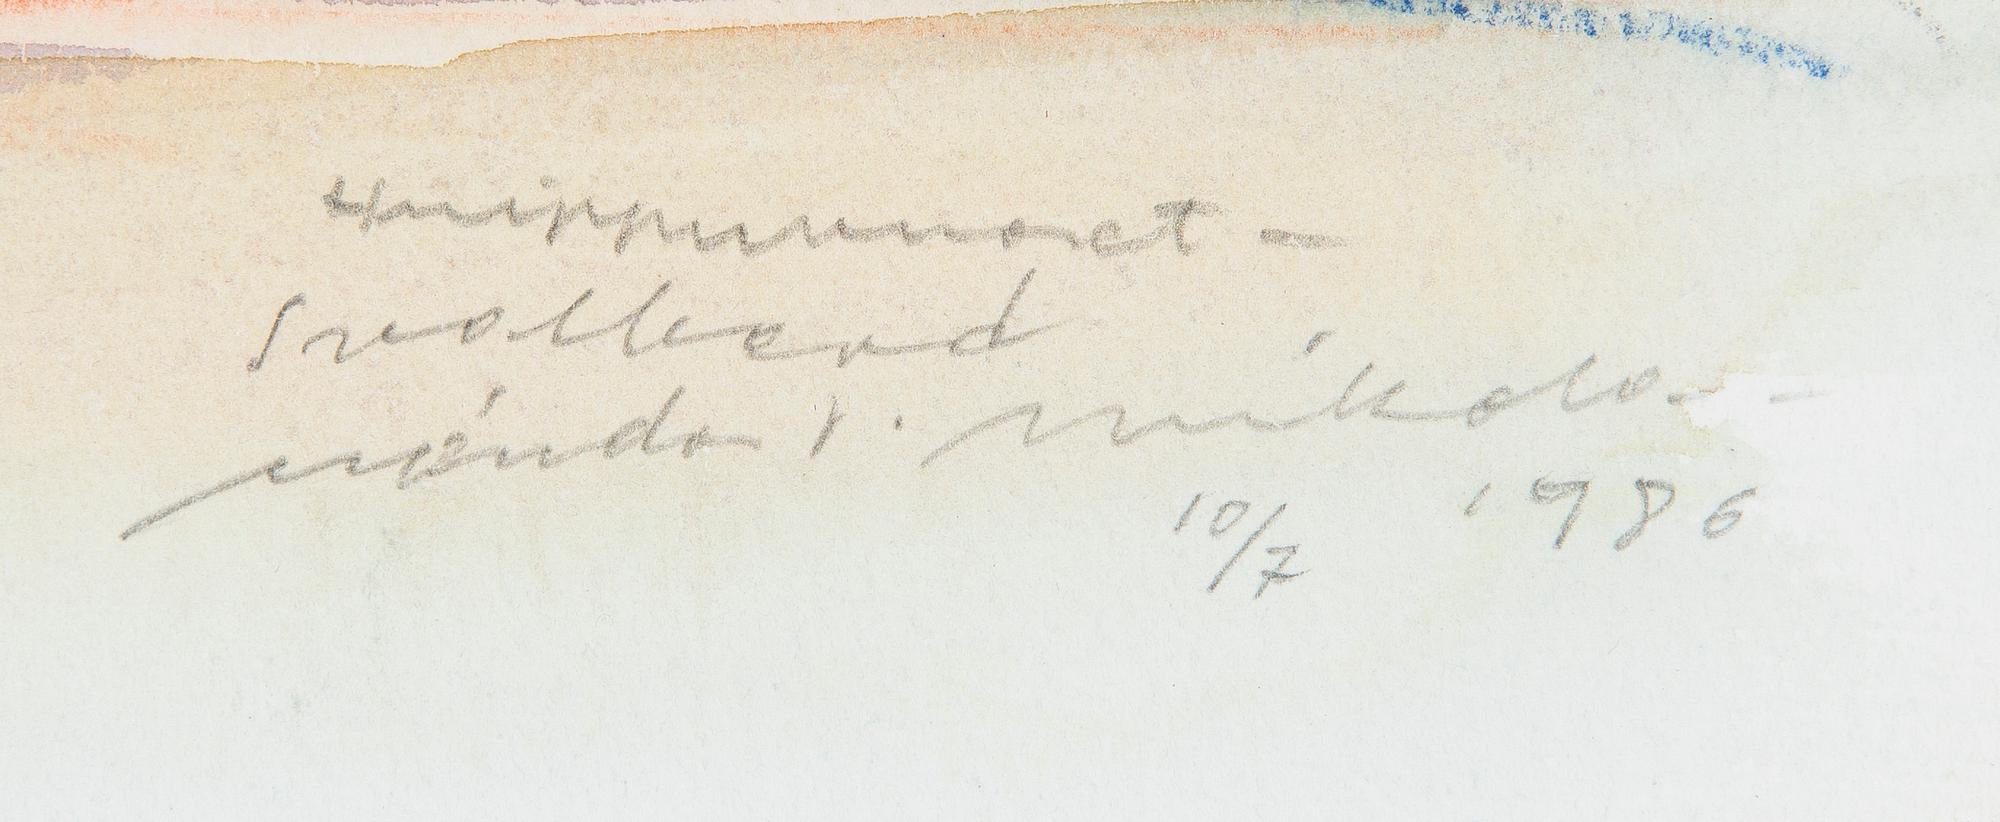 Huippuvuoret -
Svalbard
nándor. mikola-
10/7 1986